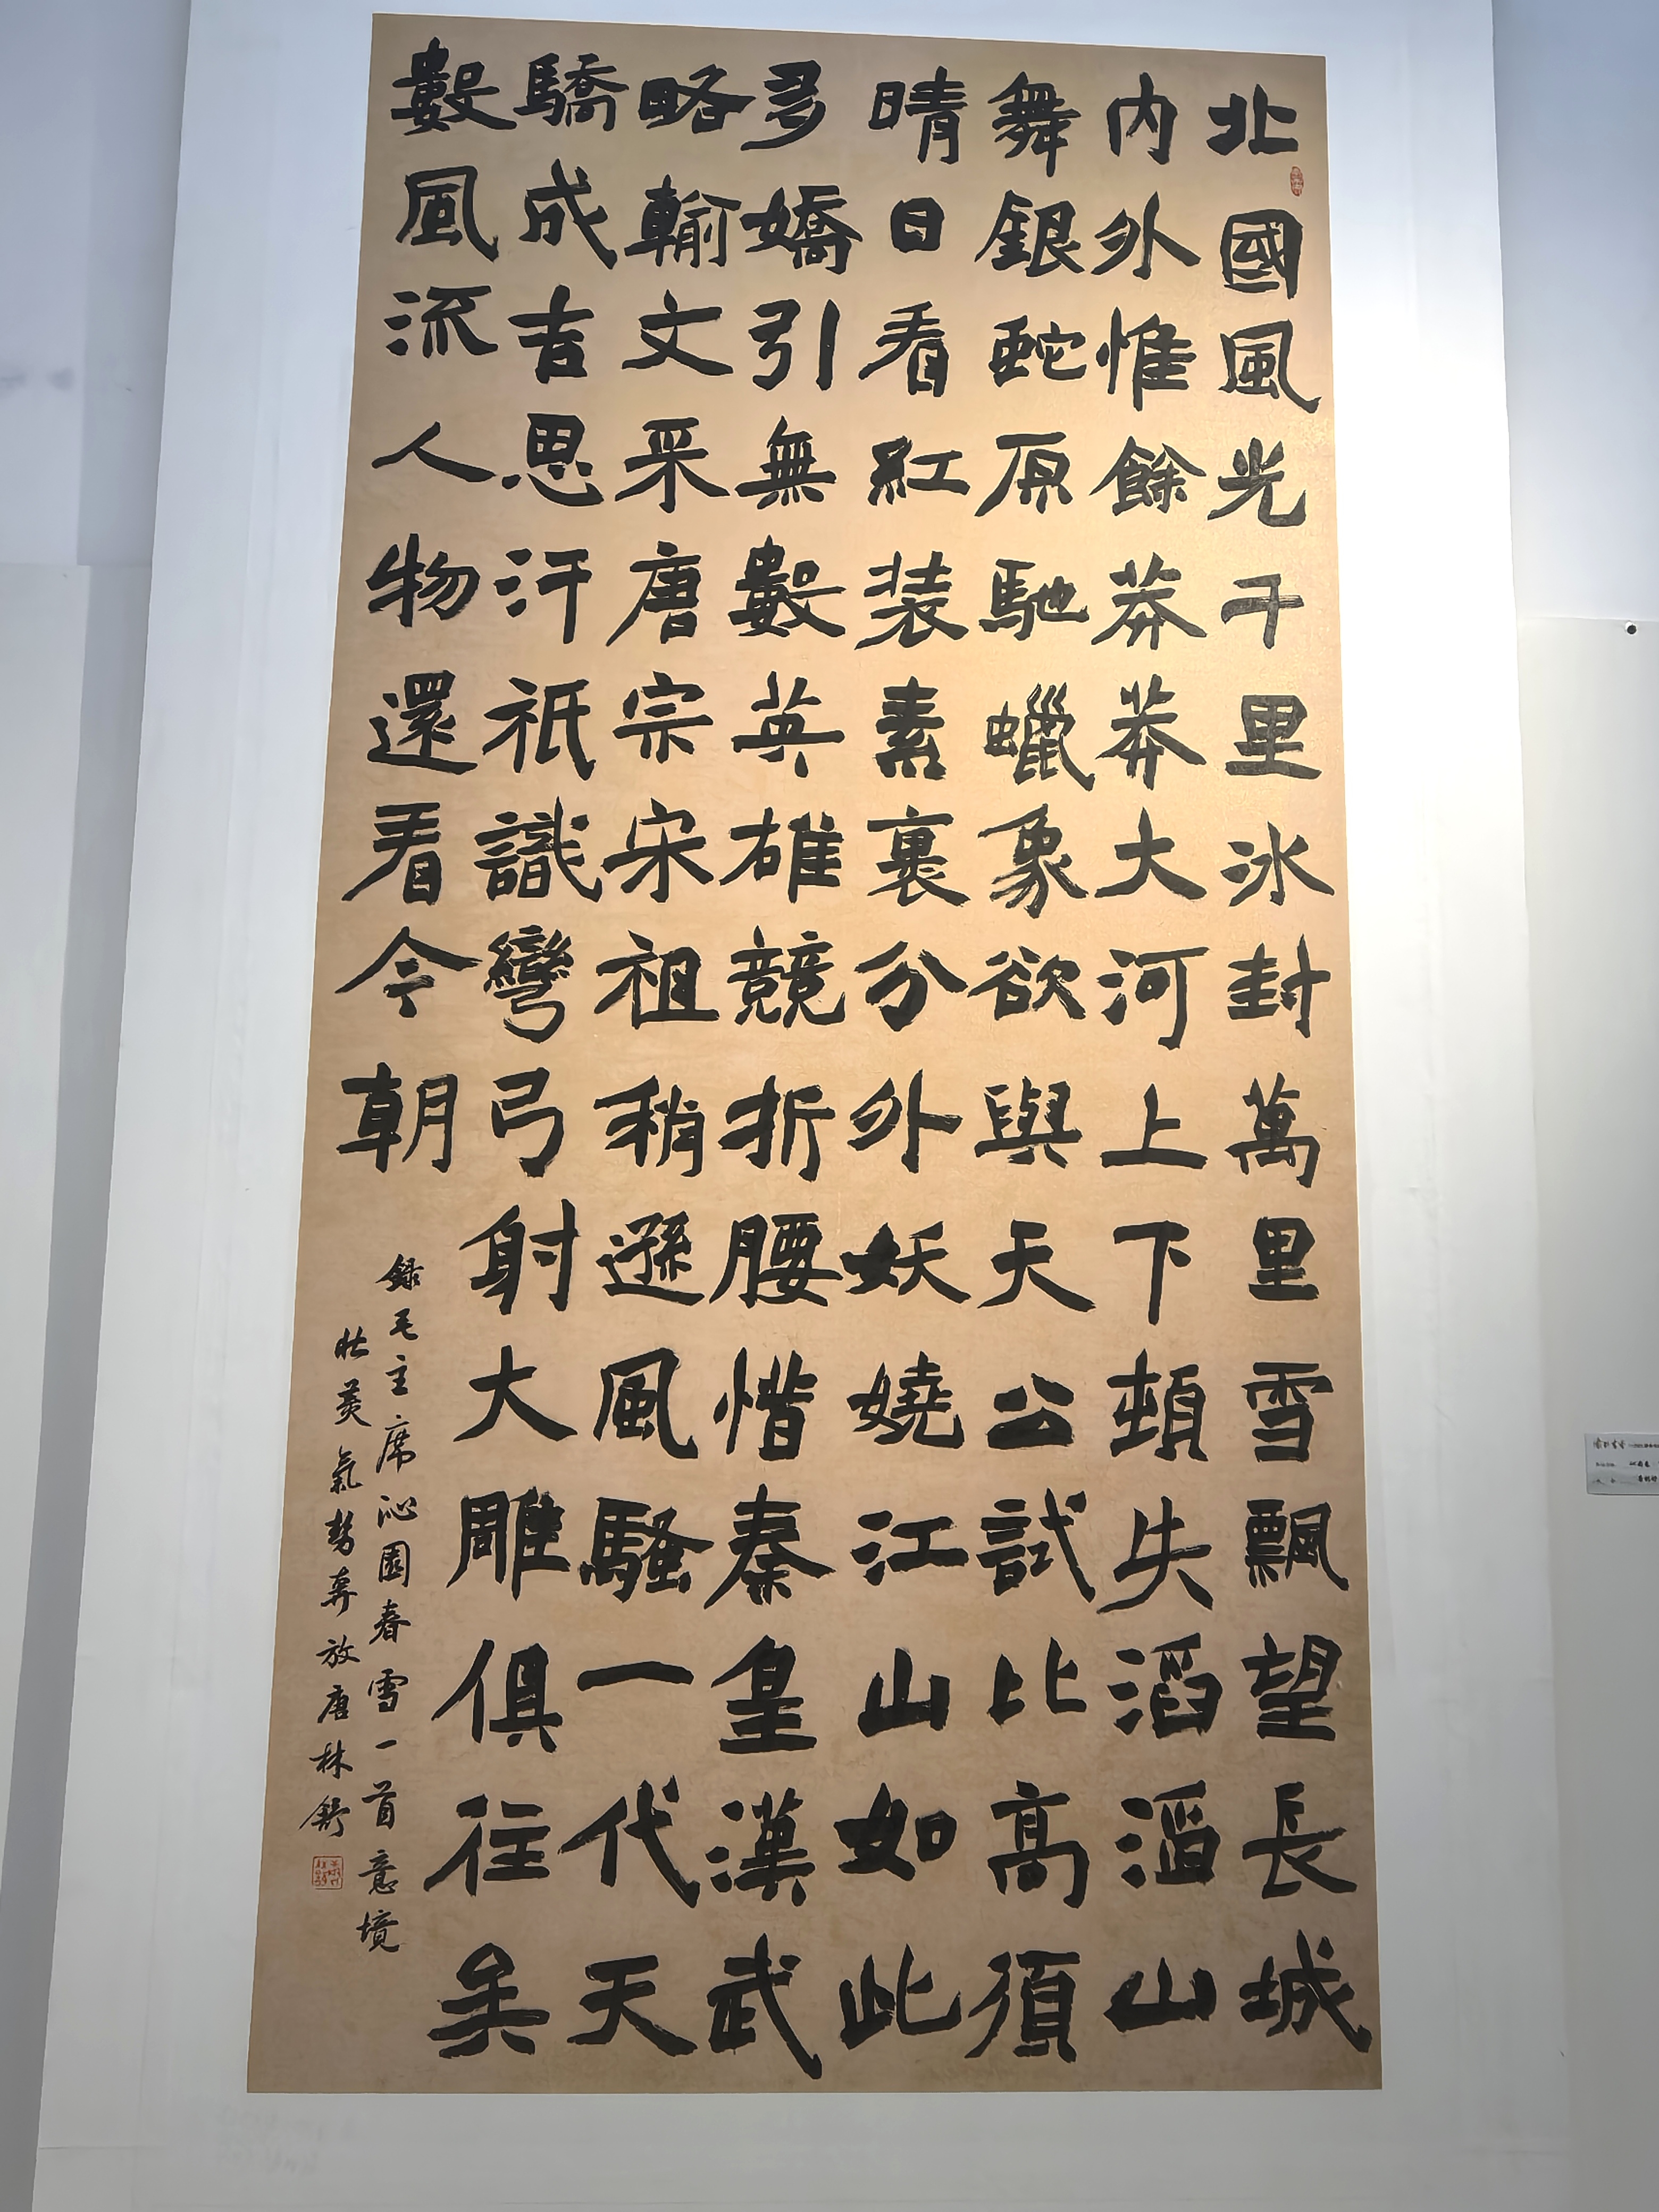 北國風光千里冰封萬里雪飄望長城
内外惟餘莽莽大河上下頓失滔滔山
舞銀蛇原馳蠟象欲與天公試比高須
晴日看紅装素裹分外妖嬈江山如此
多嬌引無數英雄競折腰惜秦皇漢武
略輸文采唐宗宋祖稍遜風騷一代天
驕成吉思汗祇識彎弓射大雕俱往矣
數風流人物還看今朝
録毛主席沁園春雪一首意境
壯美氣勢奔放唐林舒